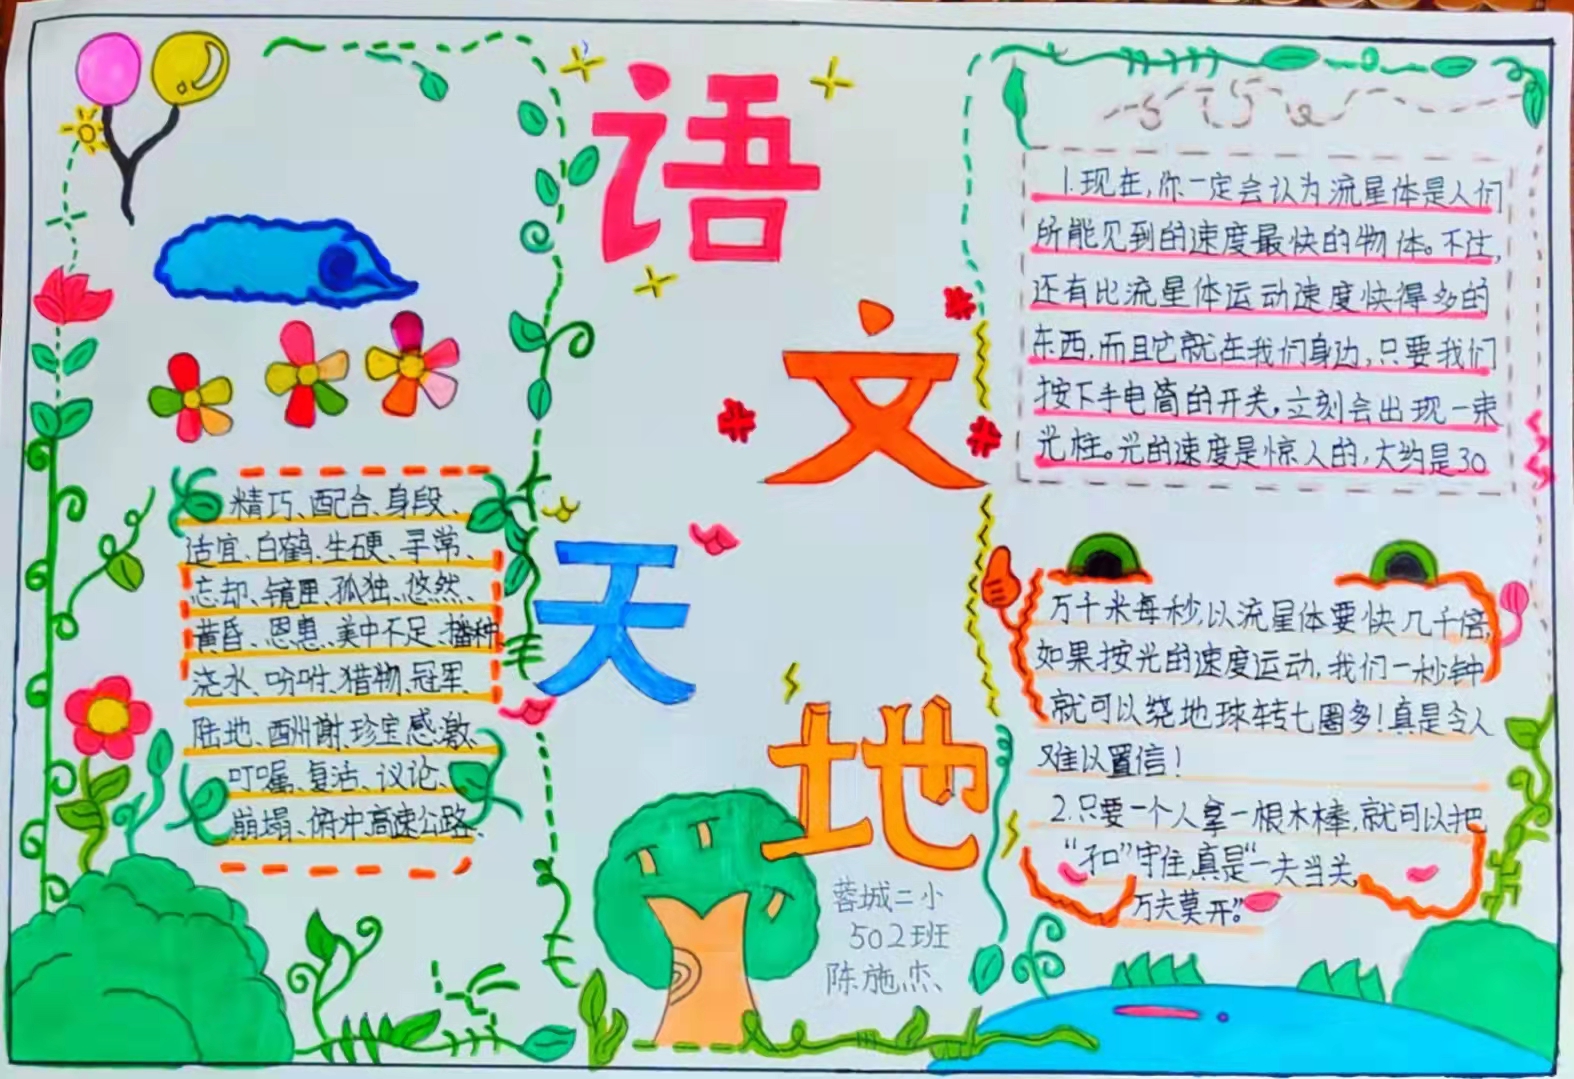 语
文
天
地
精巧、配合、身段、
适宜、白鹤、生硬、寻常、
忘却、镜匣、孤独、悠然、
黄昏、恩惠、美中不足、播种
浇水、吩咐、猎物、冠军、
陆地、酬谢、珍宝、感激、
叮嘱、复活、议论、
崩塌、俯冲、高速公路、
蓉城二小
502班
陈施杰
1.现在,你一定会认为流星体是人们
所能见到的速度最快的物体。不过,
还有比流星体运动速度快得多的
东西,而且它就在我们身边,只要我们
按下手电筒的开关,立刻会出现一束
光柱。光的速度是惊人的,大约是30
万千米每秒,以流星体要快几千倍,
如果按光的速度运动,我们一秒钟
就可以绕地球转七圈多!真是令人
难以置信!
2.只要一个人拿一根木棒,就可以把
“孔口”守住,真是“一夫当关,
万夫莫开。”